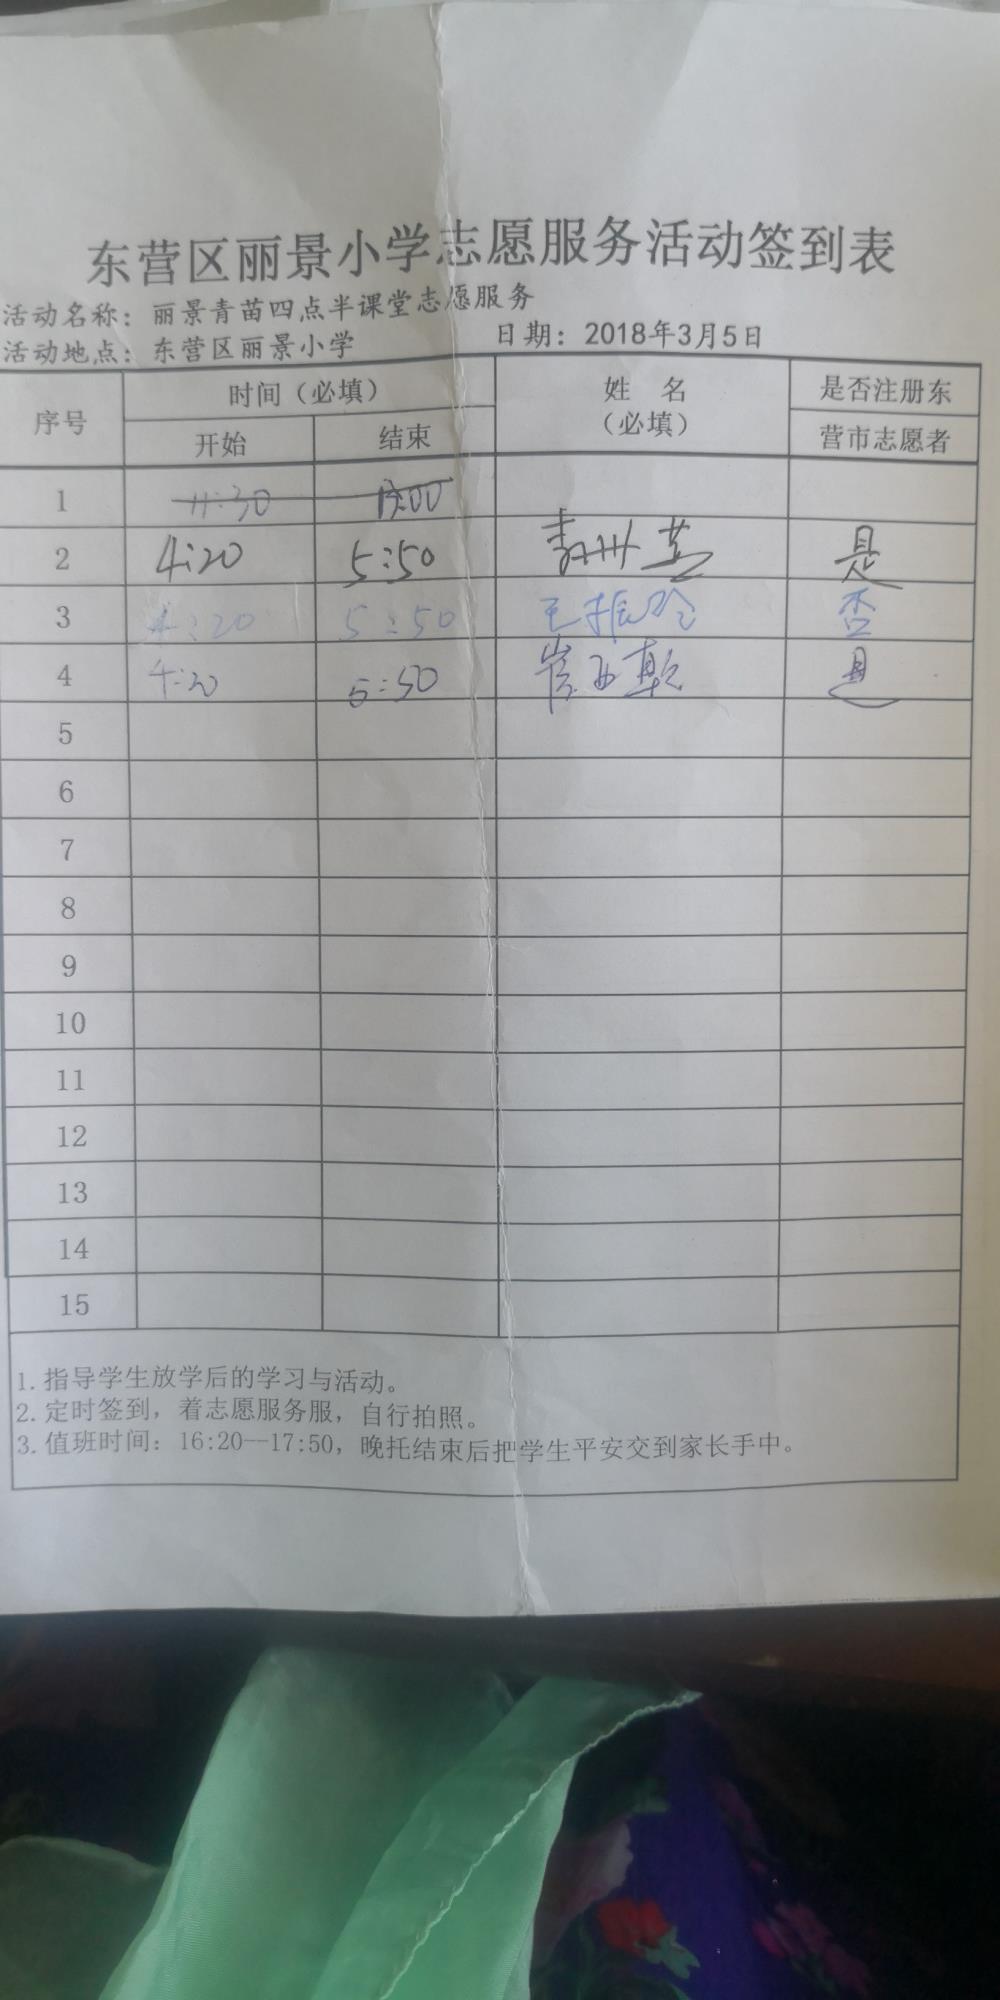 东营区丽景小学志愿服务活动签到表
活动名称：丽景青苗四点半课堂志愿服务
活动地点：东营区丽景小学 日期：2018年3月5日
序号 时间（必填） 姓 名（必填） 是否注册东营市志愿者
开始 结束
1 11:30 13:00
2 4:20 5:50 是
3 4:20 5:50 王振 否
4 4:20 5:50 崔西 是
5
6
7
8
9
10
11
12
13
14
15
1.指导学生放学后的学习与活动。
2.定时签到，着志愿服务服，自行拍照。
3.值班时间：16:20—17:50，晚托结束后把学生平安交到家长手中。